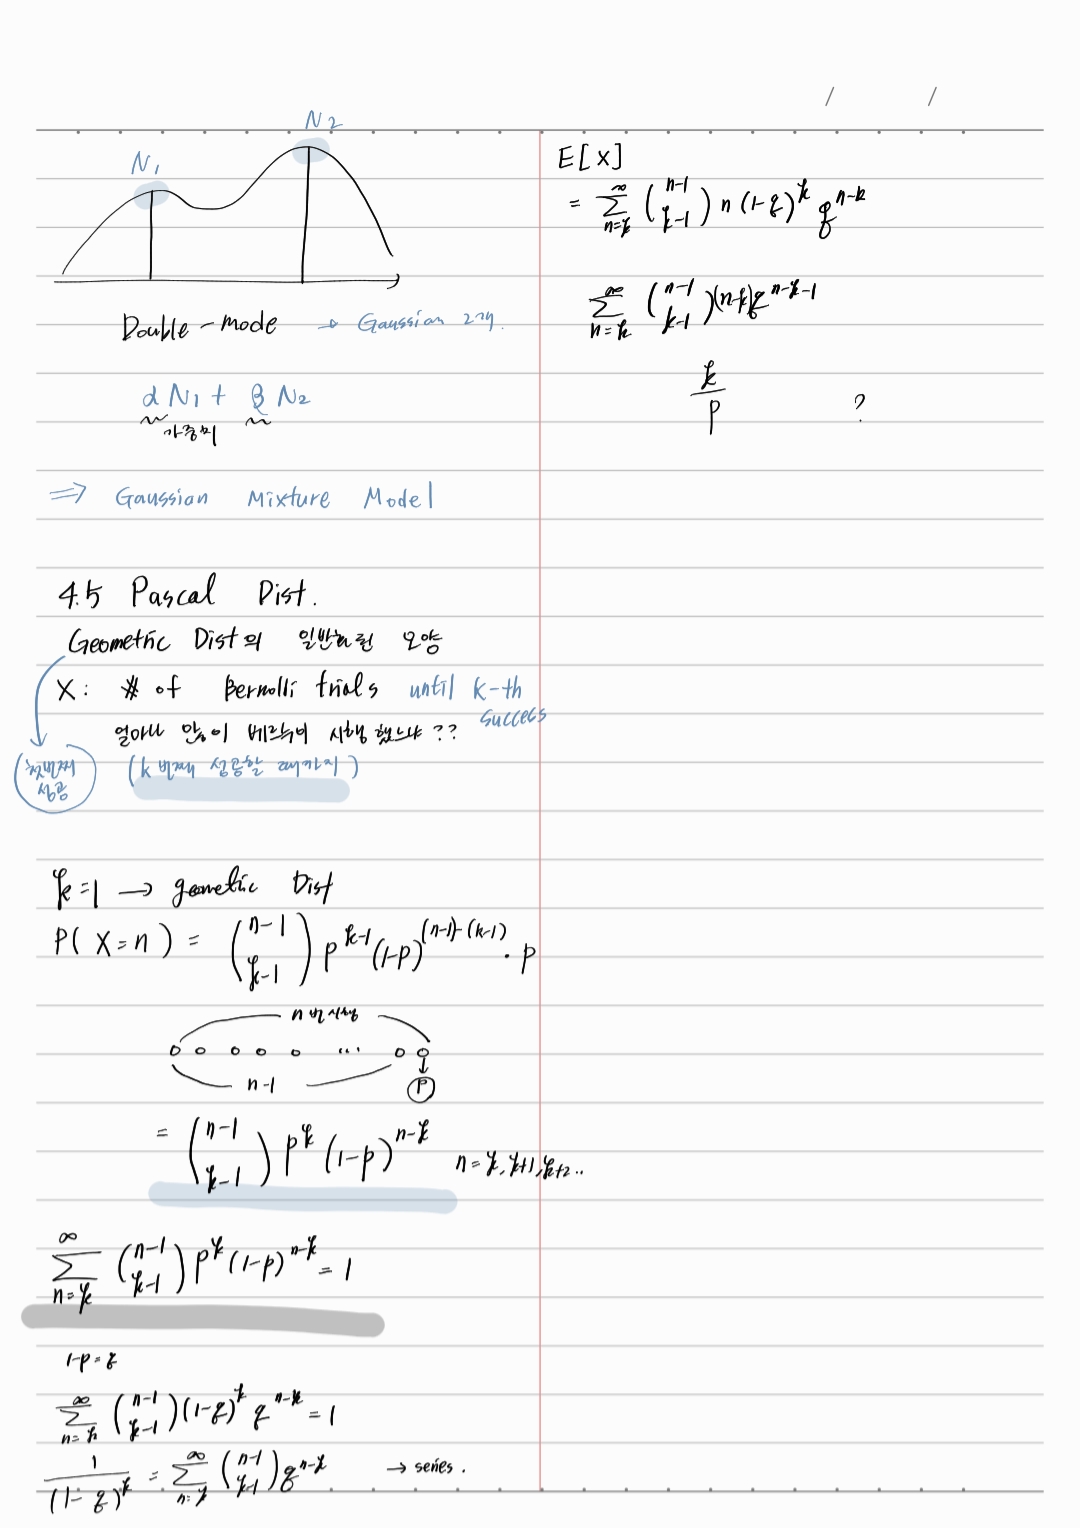 N₁
N₂
Double-mode → Gaussian 2개.
α N₁ + β N₂
가중치
⇒ Gaussian Mixture Model
4.5 Pascal Dist.
Geometric Dist의 일반화된 모양
X: # of Bernolli trials until k-th success
얼마나 많이 베르누이 시행 했느냐 ??
(k번째 성공할 때까지)
첫번째 성공
k=1 → geometic Dist
P( X=n ) = (n-1 k-1) p^{k-1} (1-p)^{(n-1)-(k-1)} · p
n 번 시행
...
n-1
P
= (n-1 k-1) p^k (1-p)^{n-k} n=k, k+1, k+2..
∑_{n=k}^{∞} (n-1 k-1) p^k (1-p)^{n-k} = 1
1-p=q
∑_{n=k}^{∞} (n-1 k-1) (1-q)^k q^{n-k} = 1
1/(1-q)^k = ∑_{n=k}^{∞} (n-1 k-1) q^{n-k} → series.
/ /
E[X]
= ∑_{n=k}^{∞} (n-1 k-1) n (1-q)^k q^{n-k}
∑_{n=k}^{∞} (n-1 k-1) (n-k) q^{n-k-1}
k/p ?